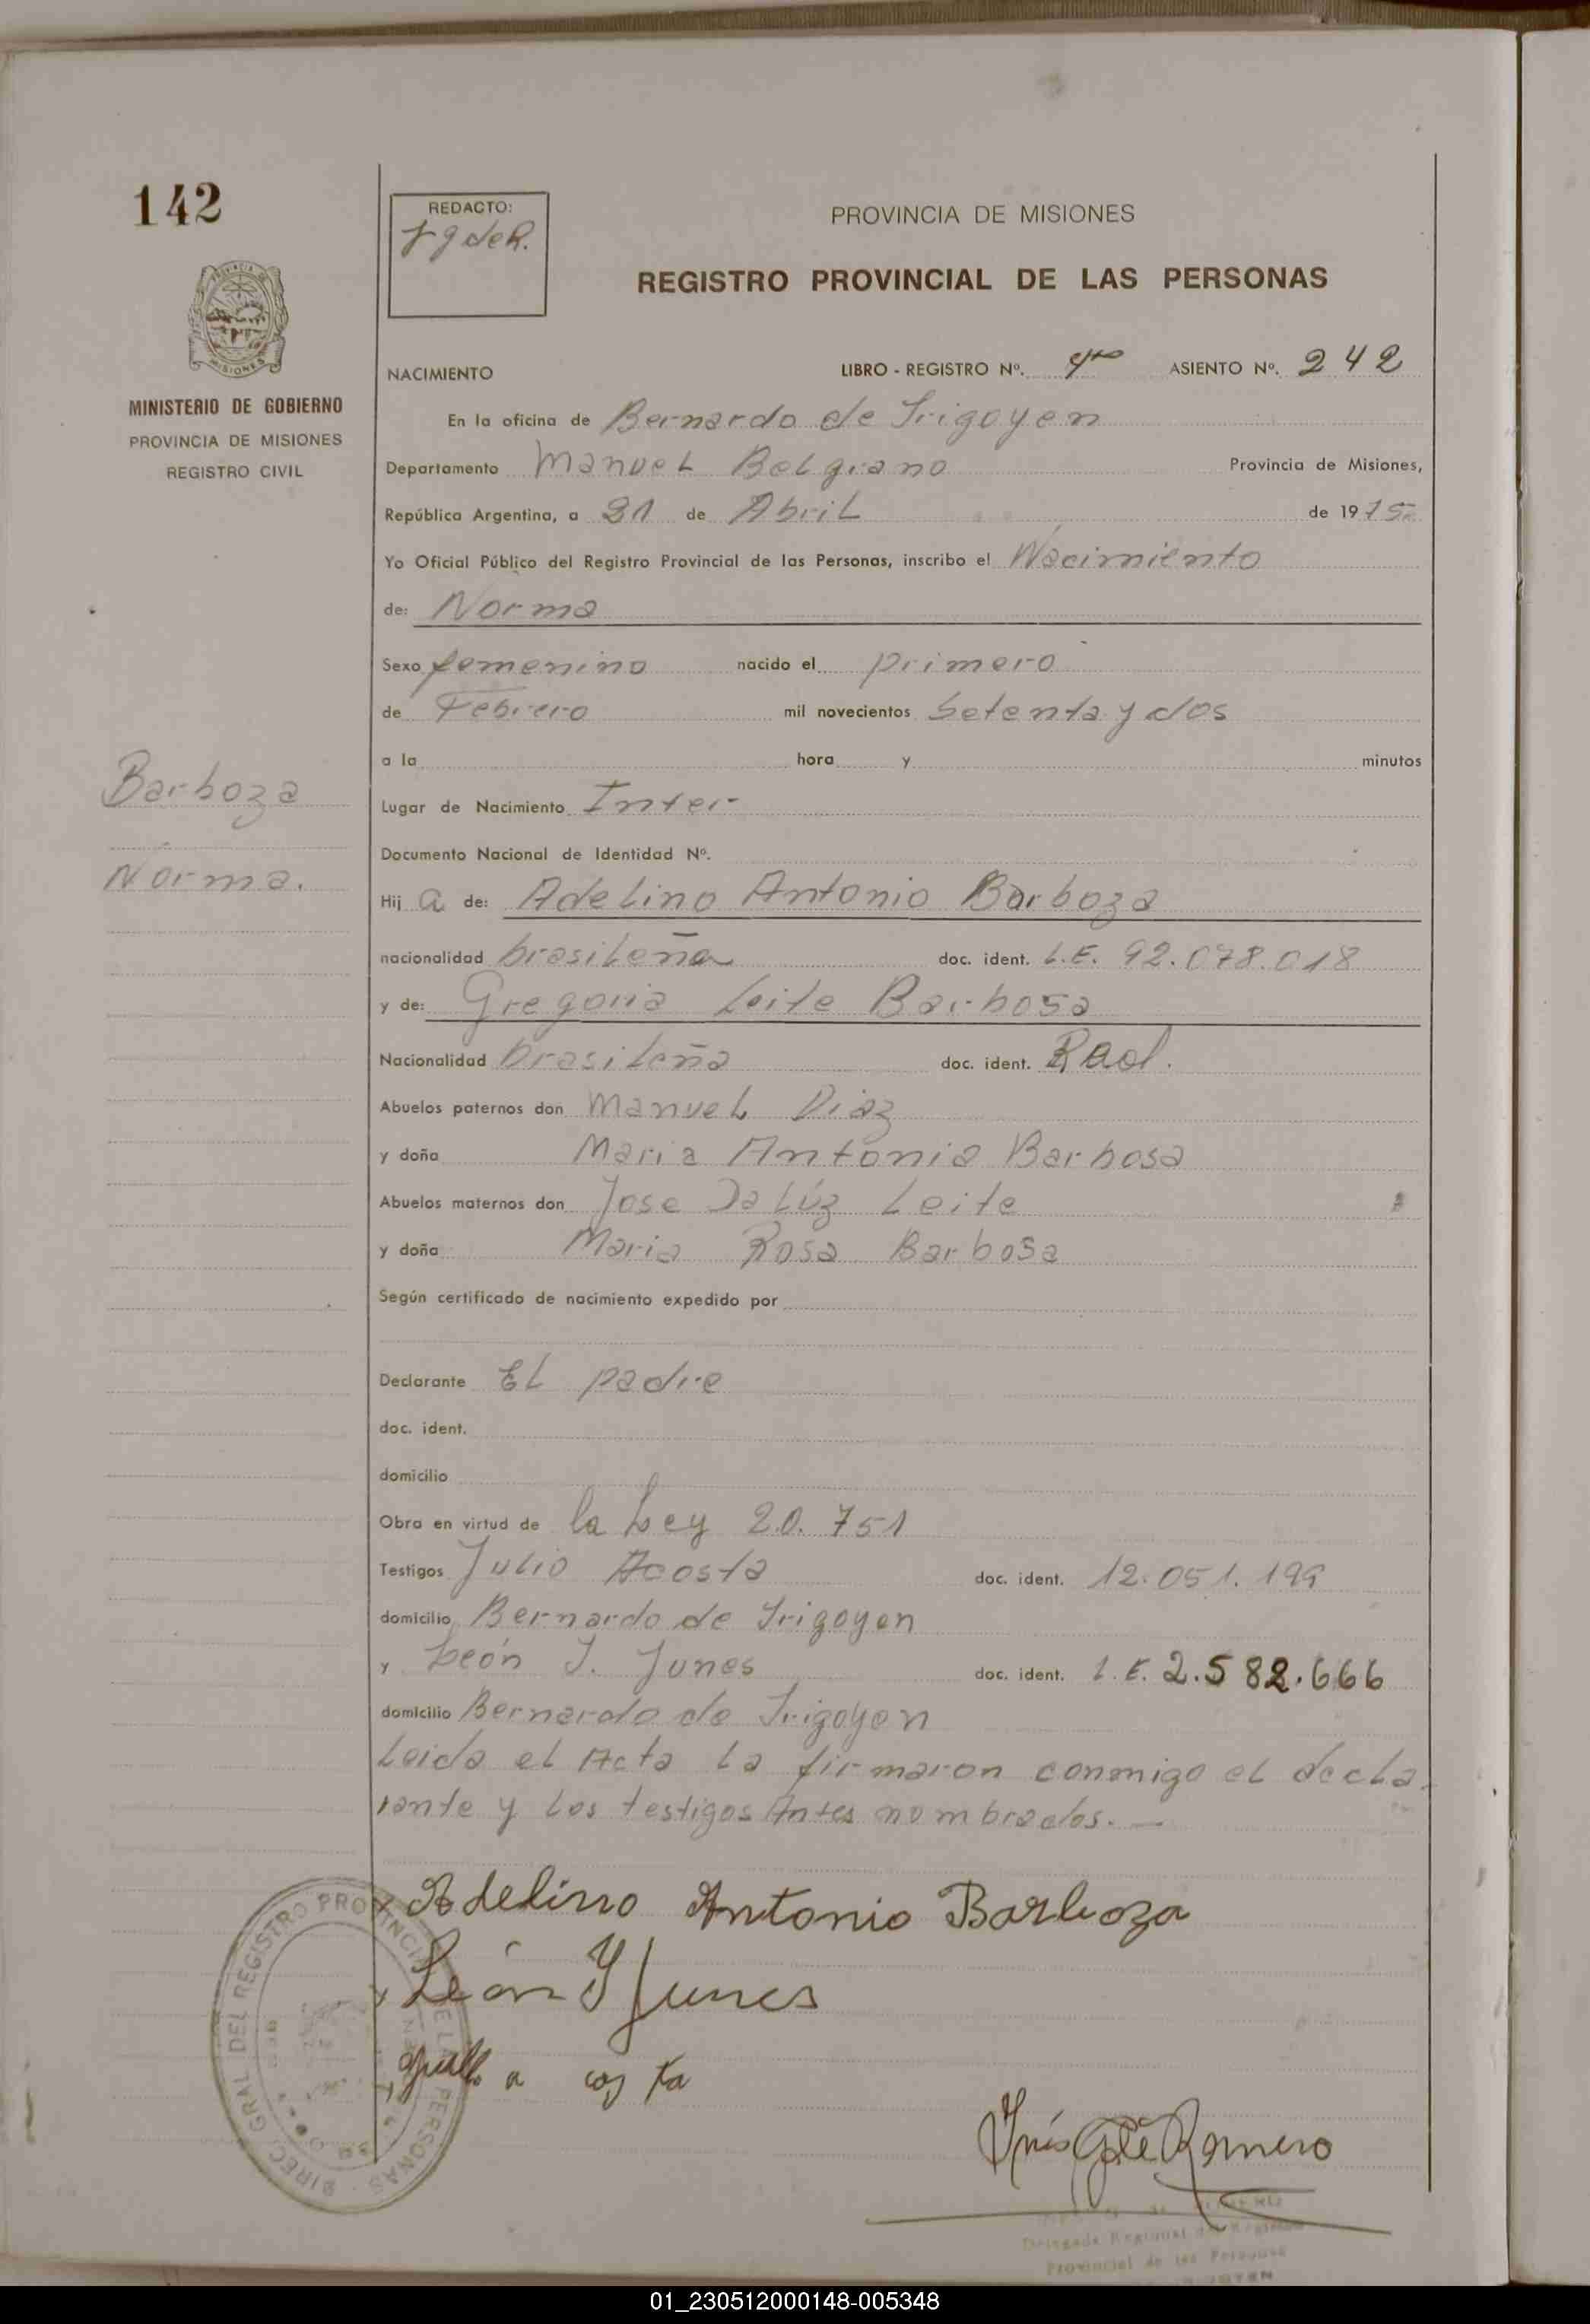 142
REDACTO:
PROVINCIA DE MISIONES
REGISTRO PROVINCIAL DE LAS PERSONAS
NACIMIENTO LIBRO - REGISTRO Nº. 4to ASIENTO Nº. 242
MINISTERIO DE GOBIERNO
PROVINCIA DE MISIONES
REGISTRO CIVIL
En la oficina de Bernardo de Irigoyen
Departamento Manuel Belgrano Provincia de Misiones,
República Argentina, a de Abril de 1975
Yo Oficial Público del Registro Provincial de las Personas, inscribo el Nacimiento
de: Norma
Sexo femenino nacido el primero
de Febrero mil novecientos setenta y dos
a la hora y minutos
Barboza
Norma.
Lugar de Nacimiento Inter
Documento Nacional de Identidad Nº.
Hij a de: Adelino Antonio Barboza
nacionalidad brasileña doc. ident. L.E. 92.078.018
y de: Gregoria Leite Barbosa
Nacionalidad brasileña doc. ident.
Abuelos paternos don Manuel Diaz
y doña Maria Antonia Barbosa
Abuelos maternos don Jose Da Lúz Leite
y doña Maria Rosa Barbosa
Según certificado de nacimiento expedido por
Declarante El padre
doc. ident.
domicilio
Obra en virtud de la Ley 20.751
Testigos Julio Acosta doc. ident. 12.051.199
domicilio Bernardo de Irigoyen
y León I. Junes doc. ident. L.E. 2.582.666
domicilio Bernardo de Irigoyen
Leida el Acta la firmaron conmigo el decla-
rante y los testigos Antes nombrados.-
Adelino Antonio Barboza
León Y Junes
Inés G de Romero
DIREC. GRAL. DEL REGISTRO PROVINCIAL DE LAS PERSONAS
Delegada Regional del Registro
Provincial de las Personas
01_230512000148-005348